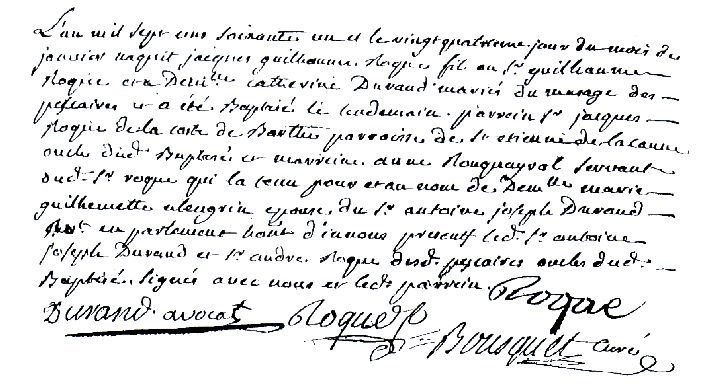 L'an mil sept cens soixante un et le vingt quatrieme jour du mois de
janvier naquit jacques guilhaume Roque fil au Sr. guilhaume
Roque et a Demlle catherine Durand mariés du masage des
pescaires et a été Baptisé le lendemain. parrein Sr. jacques
Roque de la coste de Barthe parroisse de St etienne de lacaune
oncle dud. Baptisé et marreine anne Rouquayrol servante
dud. Sr. roque qui la tenu pour et au nom de Demlle marie
guilhemette alengrin epouse du Sr. antoine joseph Durand
en parlement prèsents led. Sr. antoine
joseph Durand et Sr. andre Roque desd. pescaires oncles dud.
Baptisé. signés avec nous et led. parrein Roque
Durand avocat Roque
Bousquet curé